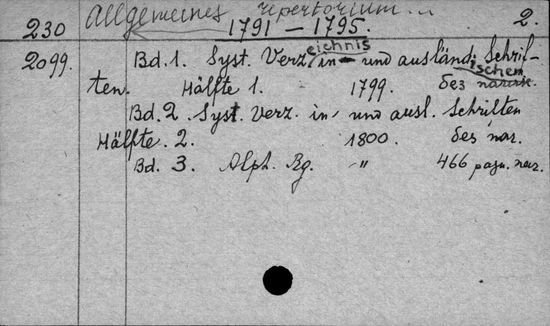 Allgemeines repertorium...
230 1791 — 1795. 2.
2099. Bd. 1. Syst. Verzeichnis in- und ausländischen Schrif-
ten. Hälfte 1. 1799. без нагин.
Bd. 2. Syst. Verz. in- und ausl. Schriften
Hälfte. 2. 1800. без паг.
Bd. 3. Alph. Rg. -"- 466 pagn. паг.